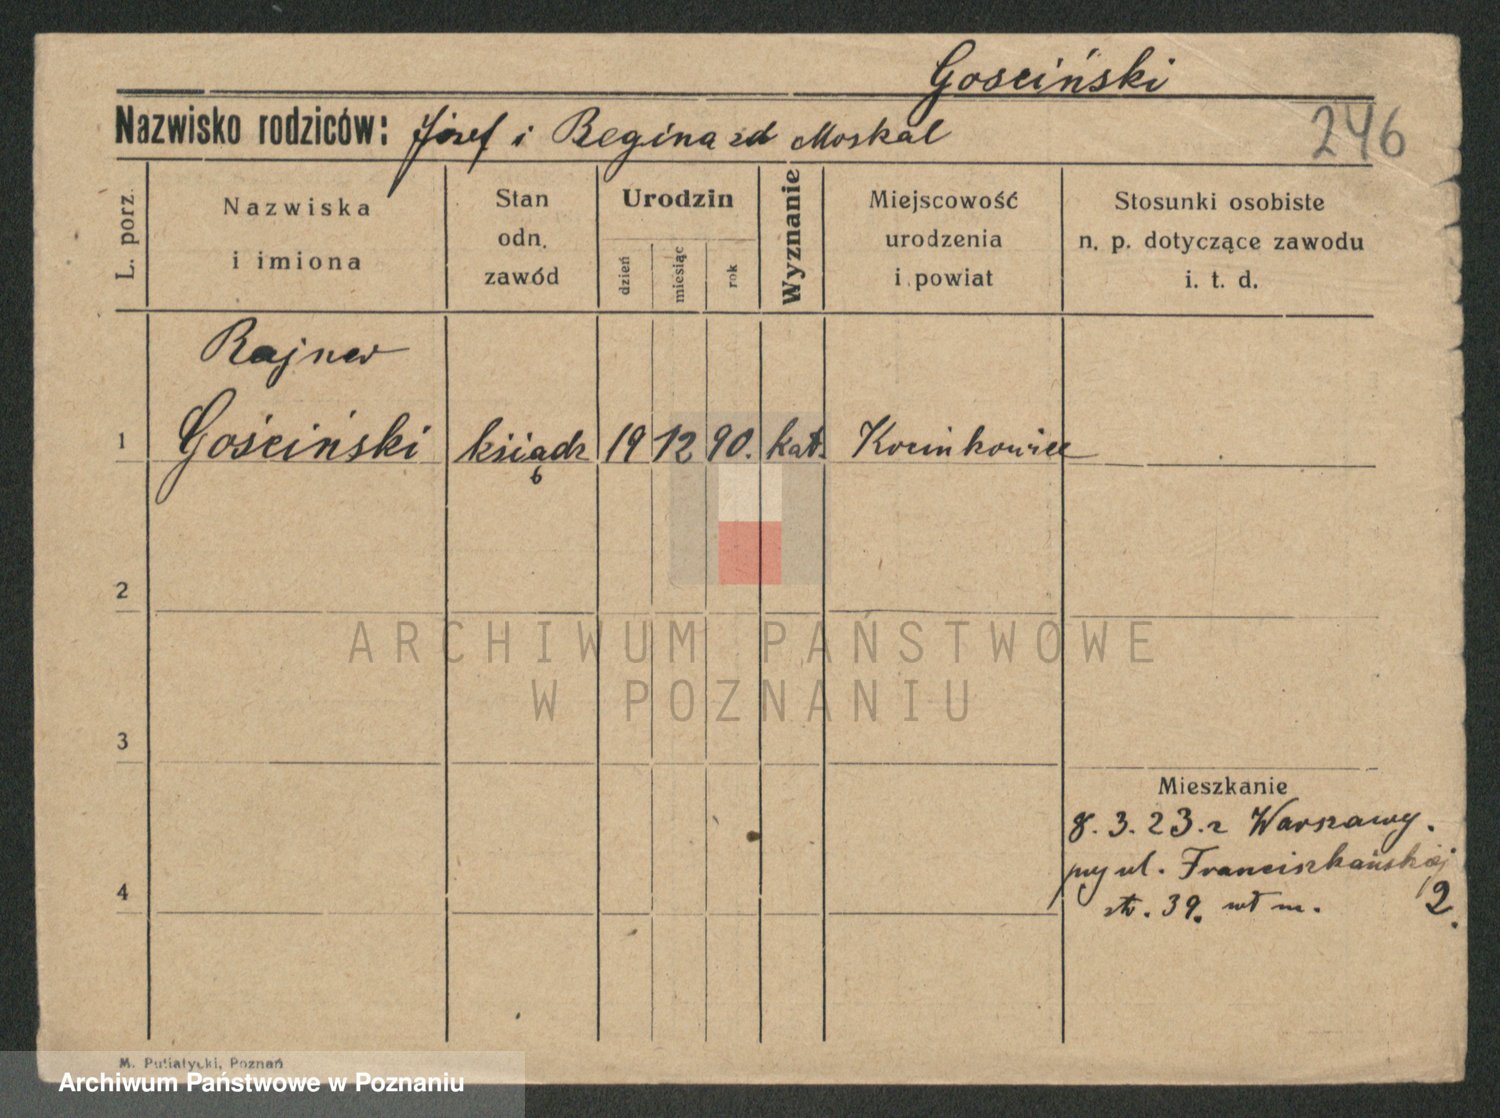 Gościński
Nazwisko rodziców: Józef i Regina zd Moskal
246
L. porz.
Nazwiska
i imiona
Stan
odn.
zawód
Urodzin
dzień
miesiąc
rok
Wyznanie
Miejscowość
urodzenia
i powiat
Stosunki osobiste
n. p. dotyczące zawodu
i. t. d.
Rajner
1 Gościński ksiądz 19 12 90. kat.
6
2
ARCHIWUM PAŃSTWOWE
W POZNANIU
3
Mieszkanie
8. 3. 23. z Warszawy.
przy ul. Franciszkańskiej
4
39. m. 2.
M. Putiatycki, Poznań
Archiwum Państwowe w Poznaniu